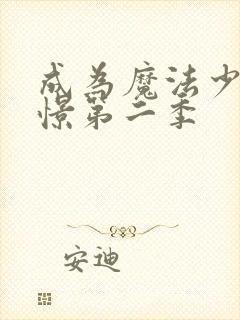 成为魔法少
憬第二季
安迪